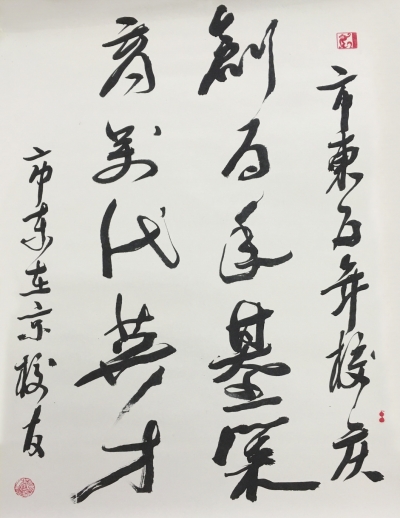 市東百年校庆
創百年基業
育万代英才
市东在京校友